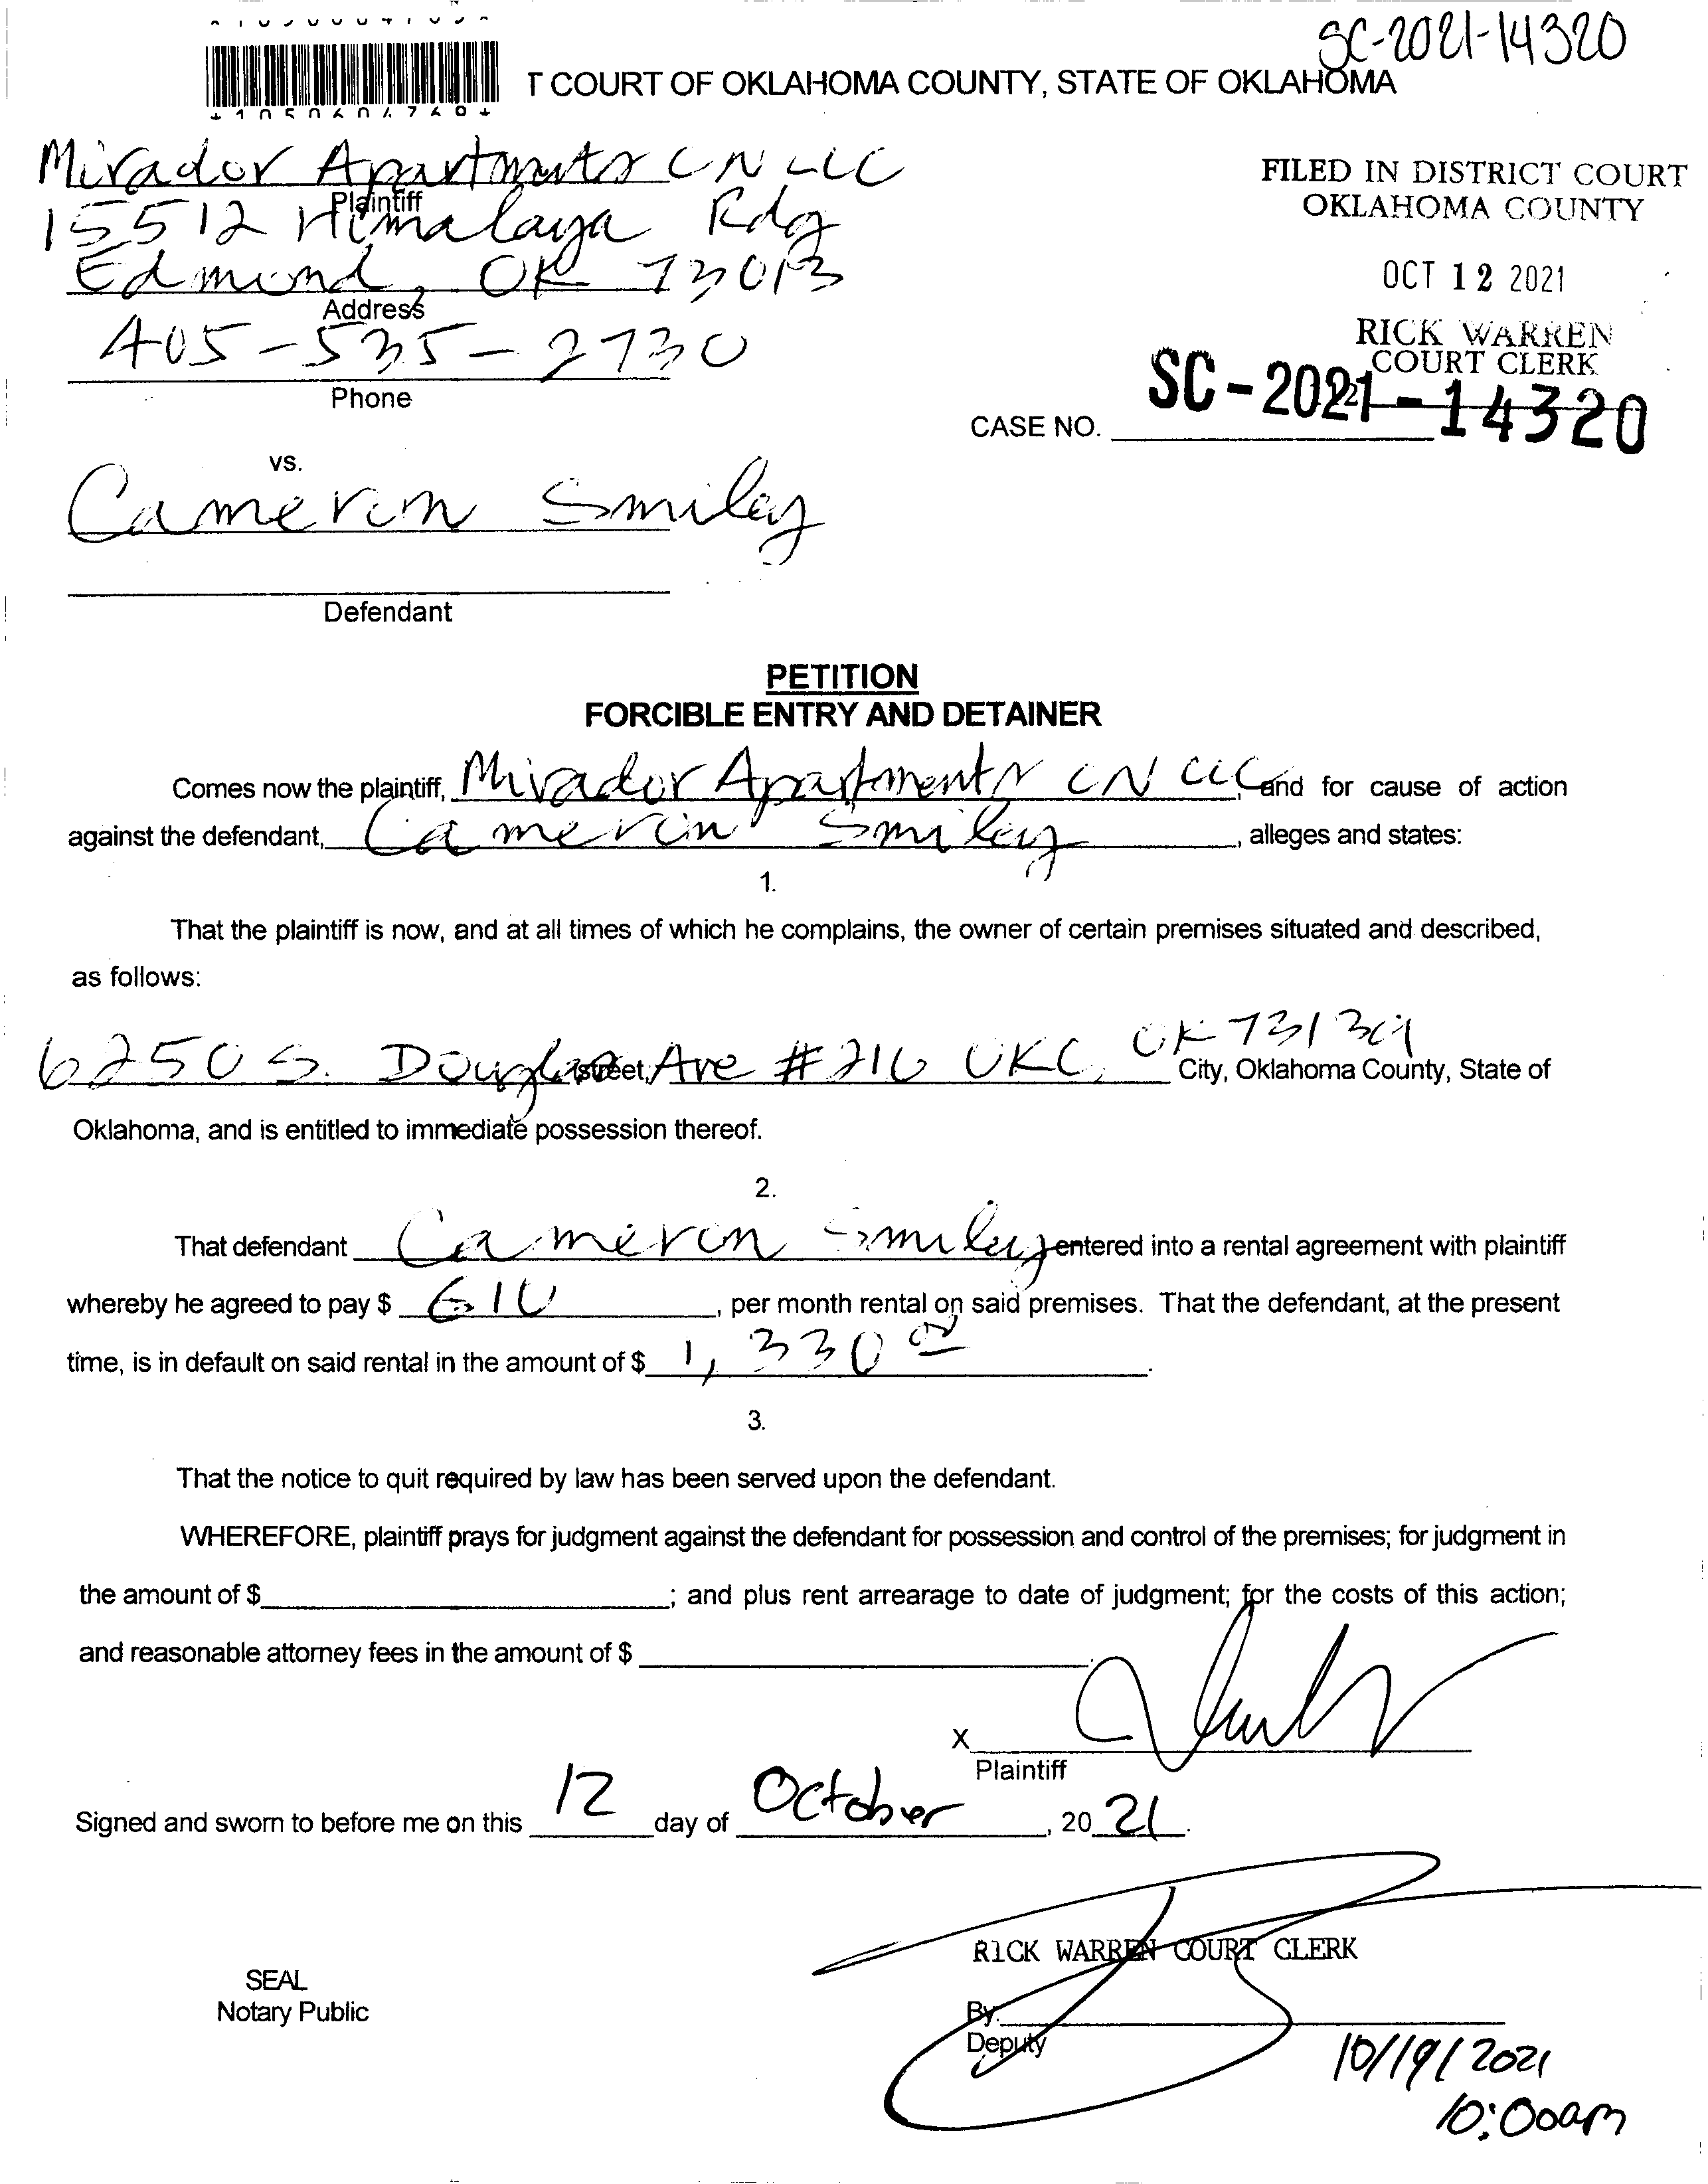 SC-2021-14320
T COURT OF OKLAHOMA COUNTY, STATE OF OKLAHOMA
Mirador Apartments CN LLC
Plaintiff
15512 Himalaya Rdg
Edmond, OK 73013
Address
405-535-2730
Phone
FILED IN DISTRICT COURT
OKLAHOMA COUNTY
OCT 12 2021
RICK WARREN
COURT CLERK
SC-2021-14320
CASE NO.
vs.
Cameron Smiley
Defendant
PETITION
FORCIBLE ENTRY AND DETAINER
Comes now the plaintiff, Mirador Apartments CN LLC, and for cause of action
against the defendant, Cameron Smiley, alleges and states:
1.
That the plaintiff is now, and at all times of which he complains, the owner of certain premises situated and described,
as follows:
6250 S. Douglas Ave #216 OKC, OK 73139
(street, City, Oklahoma County, State of
Oklahoma, and is entitled to immediate possession thereof.
2.
That defendant Cameron Smiley entered into a rental agreement with plaintiff
whereby he agreed to pay $ 610, per month rental on said premises. That the defendant, at the present
time, is in default on said rental in the amount of $ 1,330 00.
3.
That the notice to quit required by law has been served upon the defendant.
WHEREFORE, plaintiff prays for judgment against the defendant for possession and control of the premises; for judgment in
the amount of $ ; and plus rent arrearage to date of judgment; for the costs of this action;
and reasonable attorney fees in the amount of $ .
X
Plaintiff
Signed and sworn to before me on this 12 day of October, 20 21.
RICK WARREN COURT CLERK
SEAL
Notary Public
By:
Deputy
10/19/2021
10:00am